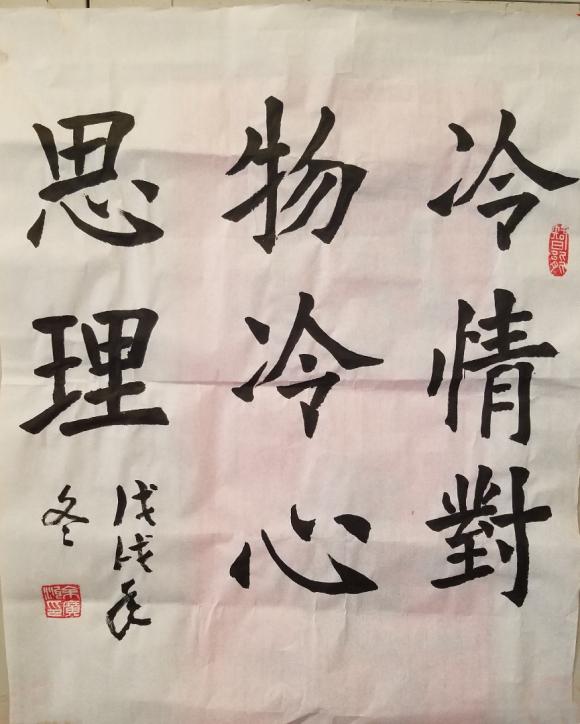 冷情對
物冷心
思理
戊戌年
冬